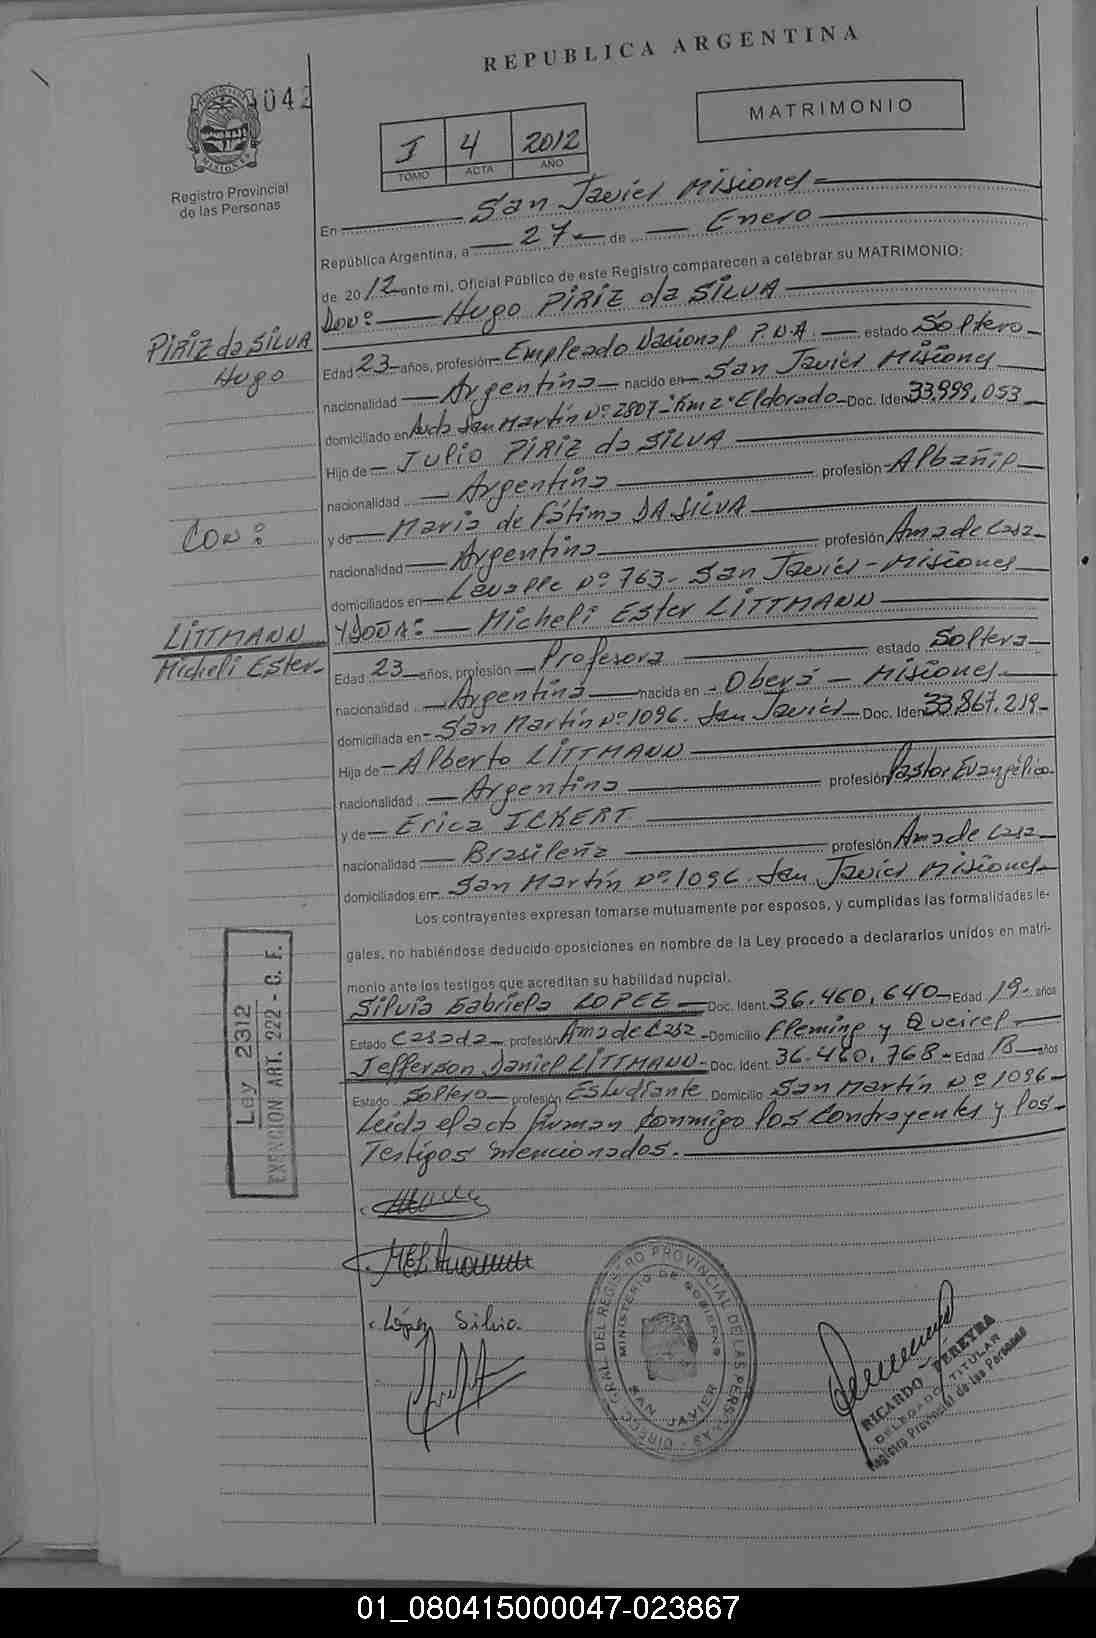 REPUBLICA ARGENTINA
042
MATRIMONIO
I 4 2012
TOMO ACTA AÑO
MISIONES
Registro Provincial
de las Personas
En San Javier Misiones
República Argentina, a 27 de Enero
de 2012 ante mi, Oficial Público de este Registro comparecen a celebrar su MATRIMONIO:
Don: Hugo PIRIZ da SILVA
PIRIZ da SILVA
Hugo
Edad 23 años, profesión Empleado Nacional P.N.A. estado Soltero
nacionalidad Argentina nacido en San Javier Misiones
domiciliado en Avda San Martín Nº 2807 - Km 2 - Eldorado - Doc. Iden 33.999.053
Hijo de Julio PIRIZ da SILVA
nacionalidad Argentina profesión Albañil
CON:
y de Maria de Fátima DA SILVA
nacionalidad Argentina profesión Ama de Casa
domiciliados en Lavalle Nº 763 - San Javier - Misiones
LITTMANN
Micheli Ester
Y DOÑA: Micheli Ester LITTMANN
Edad 23 años, profesión Profesora estado Soltera
nacionalidad Argentina nacida en Oberá - Misiones
domiciliada en San Martín Nº 1096. San Javier - Doc. Iden 33.867.219
Hija de Alberto LITTMANN
nacionalidad Argentina profesión Pastor Evangélico
y de Erica ICKERT
nacionalidad Brasileña profesión Ama de Casa
domiciliados en San Martín Nº 1096. San Javier Misiones
Los contrayentes expresan tomarse mutuamente por esposos, y cumplidas las formalidades le-
gales, no habiéndose deducido oposiciones en nombre de la Ley procedo a declararlos unidos en matri-
monio ante los testigos que acreditan su habilidad nupcial.
Silvia Gabriela LOPEZ Doc. Ident. 36.460.640 Edad 19 años
Estado Casada profesión Ama de Casa Domicilio Fleming y Queirel
Jefferson Daniel LITTMANN Doc. Ident. 36.460.768 Edad 18 años
Estado Soltero profesión Estudiante Domicilio San Martín Nº 1096
Leída el acta firman Conmigo los Contrayentes y los
Testigos mencionados.
Ley 2312
EXENCION ART. 222 - C. F.
López Silvia
DIRECC. GRAL. DEL REGISTRO PROVINCIAL DE LAS PERSONAS
MINISTERIO DE GOBIERNO
SAN JAVIER
RICARDO PEREYRA
DELEGADO TITULAR
Registro Provincial de las Personas
01_080415000047-023867